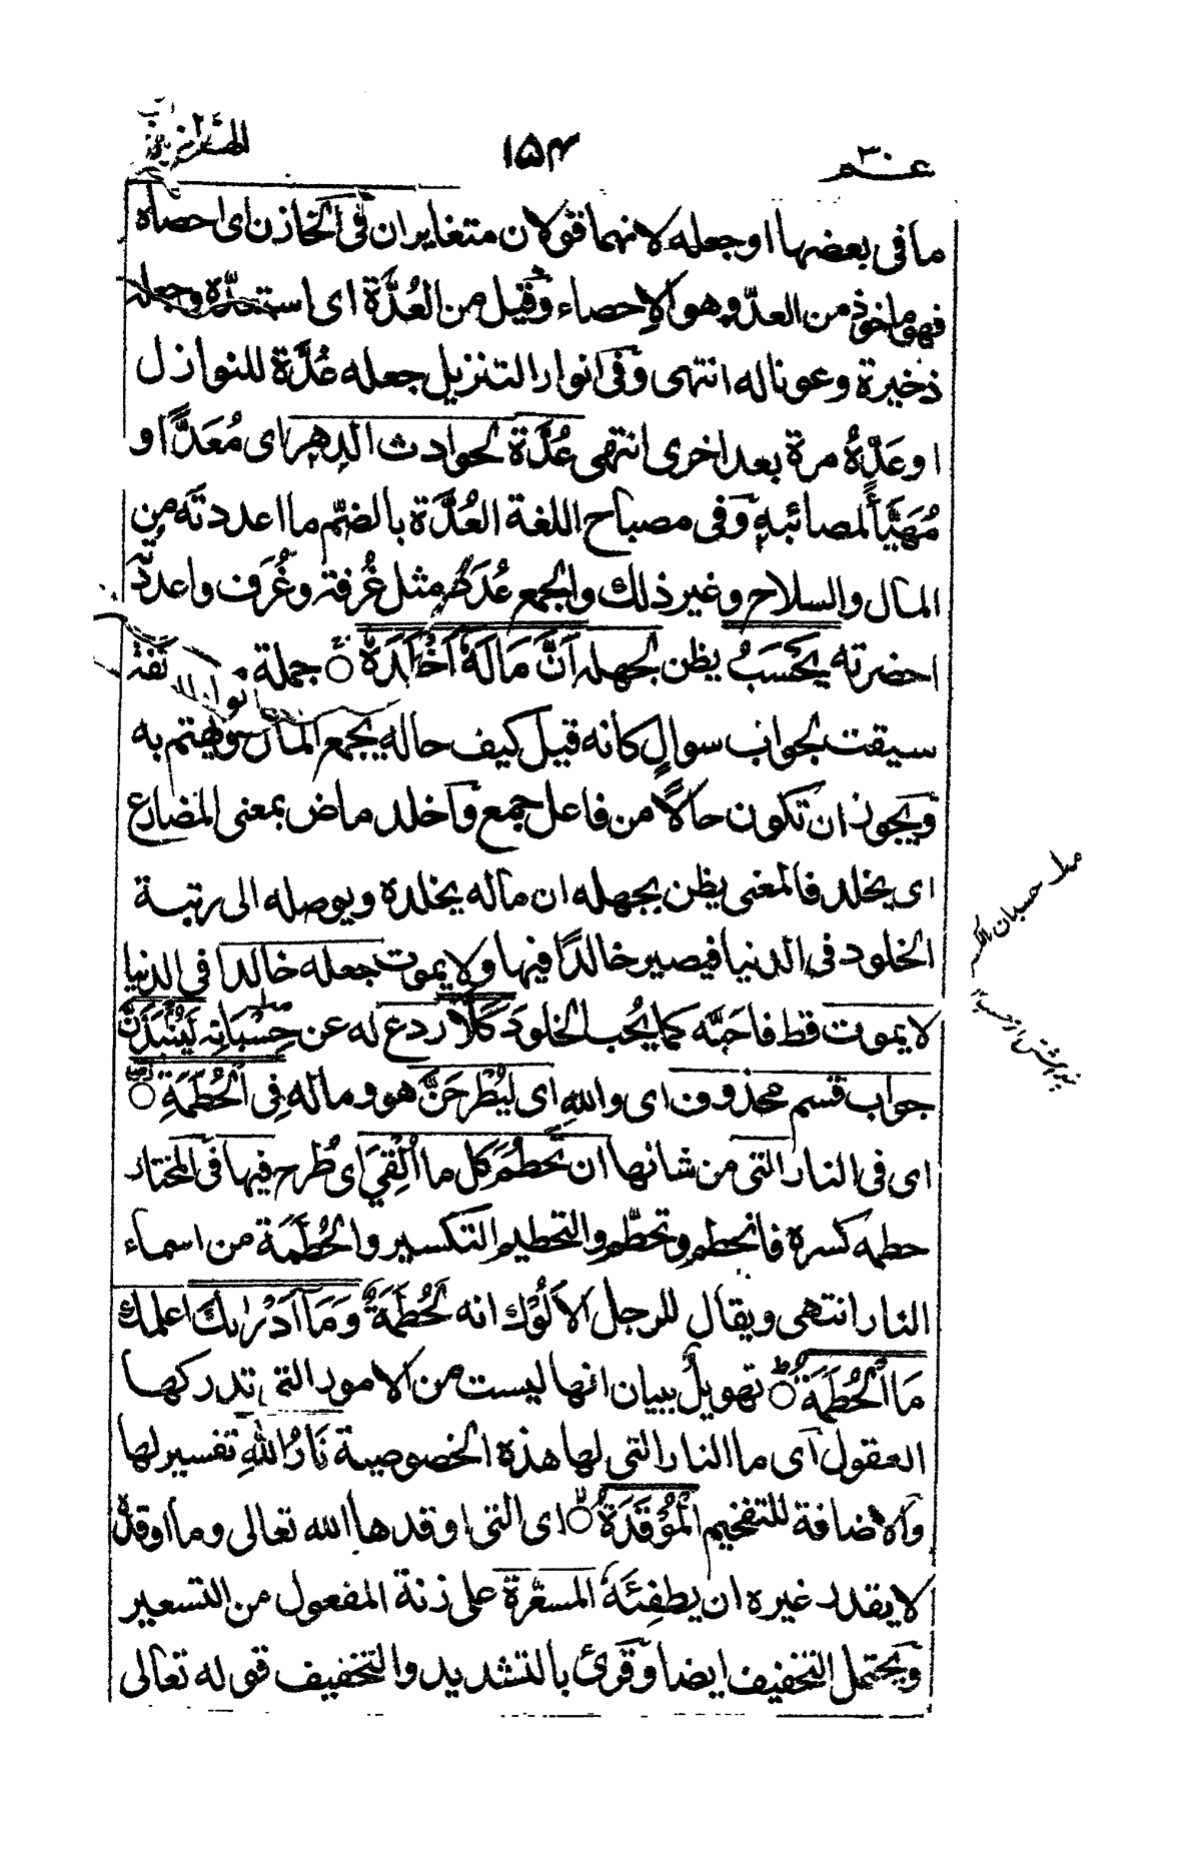 عم ٣٠
١٥٤
الهمزة
ما فى بعضها او جعله لانهما قولان متغايران فى الخازن اى احصاه
فهو ماخوذ من العدّ وهو الاحصاء وقيل من العُدَّة اى استعدّه وجعله
ذخيرة وعونا له انتهى وفى انوار التنزيل جعله عُدَّة للنوازل
او عَدَّهُ مرة بعد اخرى انتهى عُدَّة لحوادث الدهر اى مُعَدًّا او
مُهَيَّأً لمصائبه وفى مصباح اللغة العُدَّة بالضمّ ما اعددته من
المال والسلاح وغير ذلك والجمع عُدَد مثل غُرفة وغُرَف واعددّ
احضرته يَحْسَبُ يظن لجهله اَنَّ مَالَهٗ اَخْلَدَهٗ ○ جملة
سيقت لجواب سوالٍ كأنه قيل كيف حاله يجمع المال ويهتم به
ويجوز ان تكون حالًا من فاعل جمع واخلد ماض بمعنى المضارع
اى يخلد فالمعنى يظن بجهله ان ماله يخلده ويوصله الى رتبة
الخلود فى الدنيا فيصير خالدًا فيها ولا يموت جعله خالدا فى الدنيا
لا يموت قط فاحبّه كما يُحب الخلود كَلَّا ردع له عن حِسْبَانِه لَيُنْبَذَنَّ
جواب قسم محذوف اى واللهِ اى ليُطْرَحَنَّ هو وماله فِى الْحُطَمَةِ ○
اى فى النار التى من شانها ان تَحطِمَ كل ما اُلْقِيَ اى طُرح فيها فى المختار
حطمه كسره فانحطم وتحطّم والتحطيم التكسير والحُطَمَة من اسماء
النار انتهى ويقال للرجل الاَكُوْل انه لَحُطَمَةٌ وَمَآ اَدْرٰىكَ اعلمك
مَا الْحُطَمَةُ ○ تهويلٌ ببيان انها ليست من الامور التى تدركها
العقول اى ما النار التى لها هذه الخصوصية نَارُ اللهِ تفسير لها
والاضافة للتفخيم الْمُوْقَدَةُ ○ اى التى اوقدها الله تعالى وما اوقده
لا يقدر غيره ان يطفِئَهٗ المسعّرة على زنة المفعول من التسعير
ويحتمل التخفيف ايضا وقرئ بالتشديد والتخفيف قوله تعالى
حسبان بالكسر